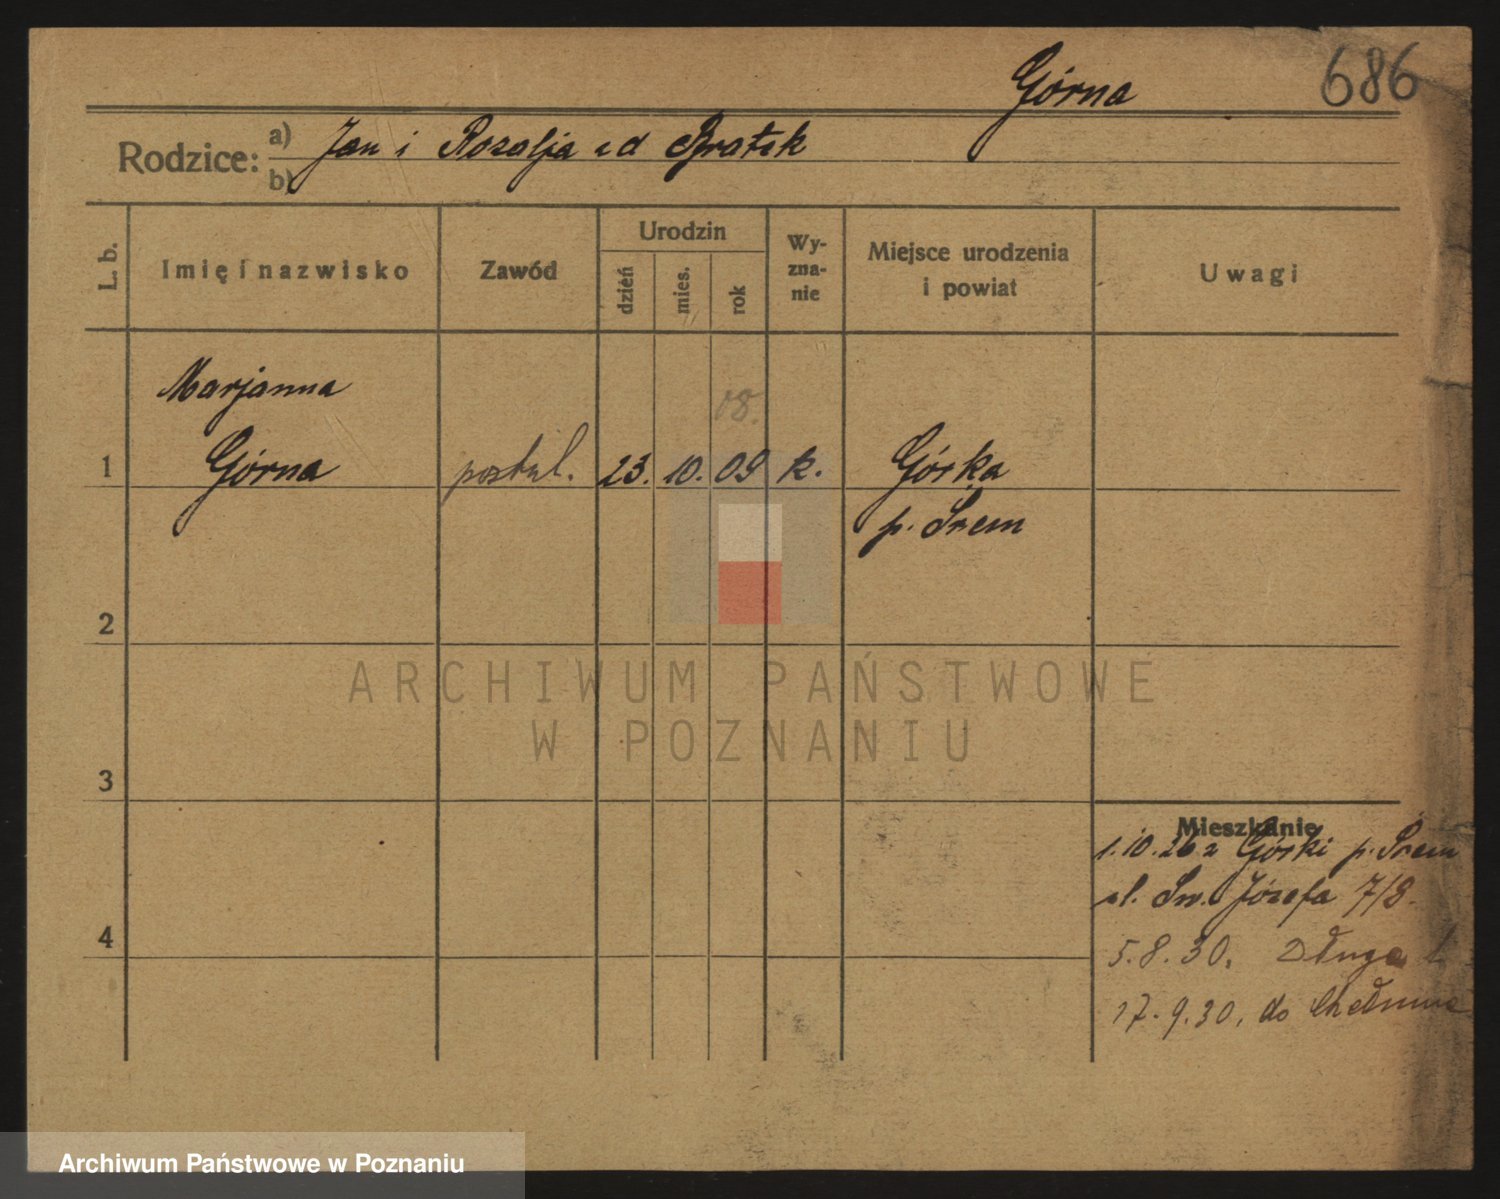 Górna 686
Rodzice: a) Jan i Rozalja zd Bratek
b)
L. b.
Imię i nazwisko
Zawód
Urodzin
dzień
mies.
rok
Wy-
zna-
nie
Miejsce urodzenia
i powiat
Uwagi
Marjanna
08.
1 Górna postul. 23. 10. 09 k. Górka
p. Śrem
2
ARCHIWUM PAŃSTWOWE
W POZNANIU
3
Mieszkanie
1.10.26 z Górki p. Śrem
ul. Św. Józefa 7/8.
4
5.8.30. Długa
17.9.30. do Chełmna
Archiwum Państwowe w Poznaniu